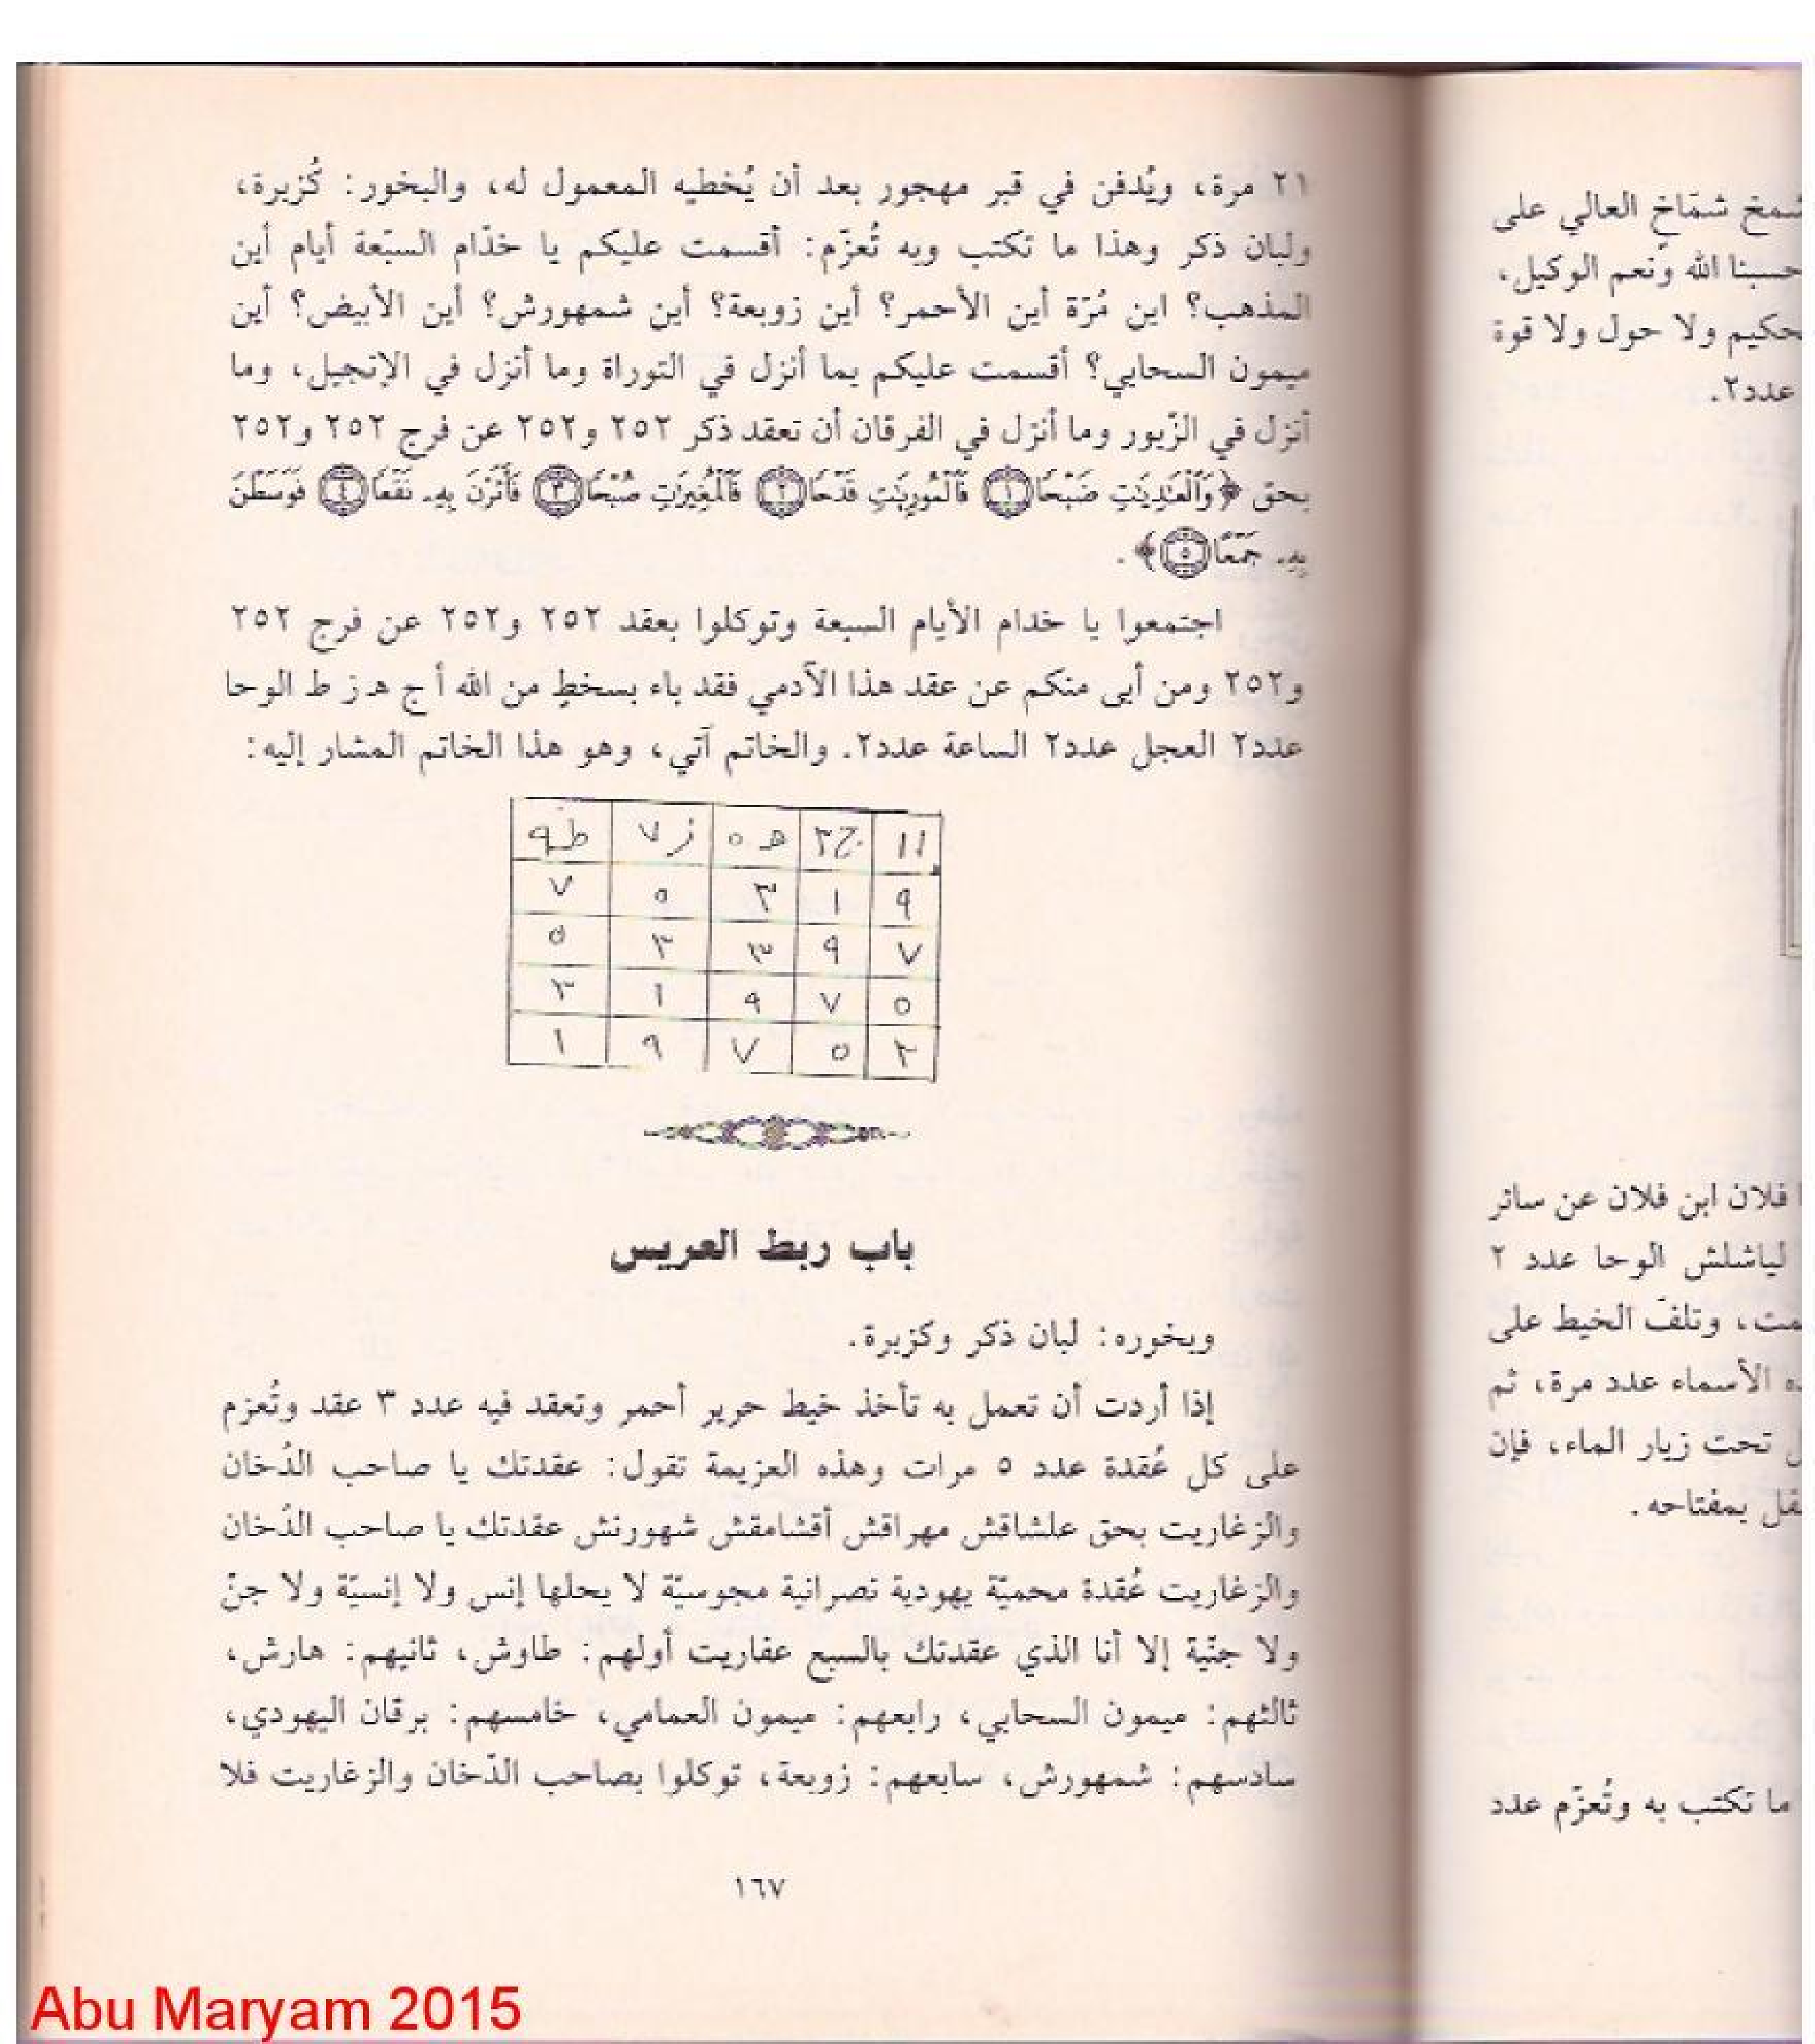 ٢١ مرة، ويُدفن في قبر مهجور بعد أن يُخطيه المعمول له، والبخور: كُزبرة،
ولبان ذكر وهذا ما تكتب وبه تُعزّم: أقسمت عليكم يا خدّام السبّعة أيام أين
المذهب؟ ابن مُرّة أين الأحمر؟ أين زوبعة؟ أين شمهورش؟ أين الأبيض؟ أين
ميمون السحابي؟ أقسمت عليكم بما أنزل في التوراة وما أنزل في الإنجيل، وما
أنزل في الزّبور وما أنزل في الفرقان أن تعقد ذكر ٢٥٢ و٢٥٢ عن فرج ٢٥٢ و٢٥٢
بحق ﴿وَٱلْعَٰدِيَٰتِ ضَبْحًا ١ فَٱلْمُورِيَٰتِ قَدْحًا ٢ فَٱلْمُغِيرَٰتِ صُبْحًا ٣ فَأَثَرْنَ بِهِۦ نَقْعًا ٤ فَوَسَطْنَ
بِهِۦ جَمْعًا ٥﴾.
اجتمعوا يا خدام الأيام السبعة وتوكلوا بعقد ٢٥٢ و٢٥٢ عن فرج ٢٥٢
و٢٥٢ ومن أبى منكم عن عقد هذا الآدمي فقد باء بسخطٍ من الله أ ج هـ ز ط الوحا
عدد٢ العجل عدد٢ الساعة عدد٢. والخاتم آتي، وهو هذا الخاتم المشار إليه:
١١ ج٣ هـ ٥ ز ٧ ط٩
٩ ١ ٣ ٥ ٧
٧ ٩ ٣ ٥
٥ ٧ ٩ ١ ٣
٣ ٥ ٧ ٩ ١
باب ربط العريس
وبخوره: لبان ذكر وكزبرة.
إذا أردت أن تعمل به تأخذ خيط حرير أحمر وتعقد فيه عدد ٣ عقد وتُعزم
على كل عُقدة عدد ٥ مرات وهذه العزيمة تقول: عقدتك يا صاحب الدُخان
والزغاريت بحق علشاقش مهراقش أقشامقش شهورنش عقدتك يا صاحب الدُخان
والزغاريت عُقدة محميّة يهودية نصرانية مجوسيّة لا يحلها إنس ولا إنسيّة ولا جنّ
ولا جنّية إلا أنا الذي عقدتك بالسبع عفاريت أولهم: طاوش، ثانيهم: هارش،
ثالثهم: ميمون السحابي، رابعهم: ميمون العمامي، خامسهم: برقان اليهودي،
سادسهم: شمهورش، سابعهم: زوبعة، توكلوا بصاحب الدّخان والزغاريت فلا
١٦٧
شمخ شمّاخ العالي على
حسبنا الله ونعم الوكيل،
ولا حول ولا قوة
عدد٢.
فلان ابن فلان عن سائر
لياشلش الوحا عدد ٢
وتلفّ الخيط على
الأسماء عدد مرة، ثم
تحت زيار الماء، فإن
بمفتاحه.
ما تكتب به وتُعزّم عدد
Abu Maryam 2015